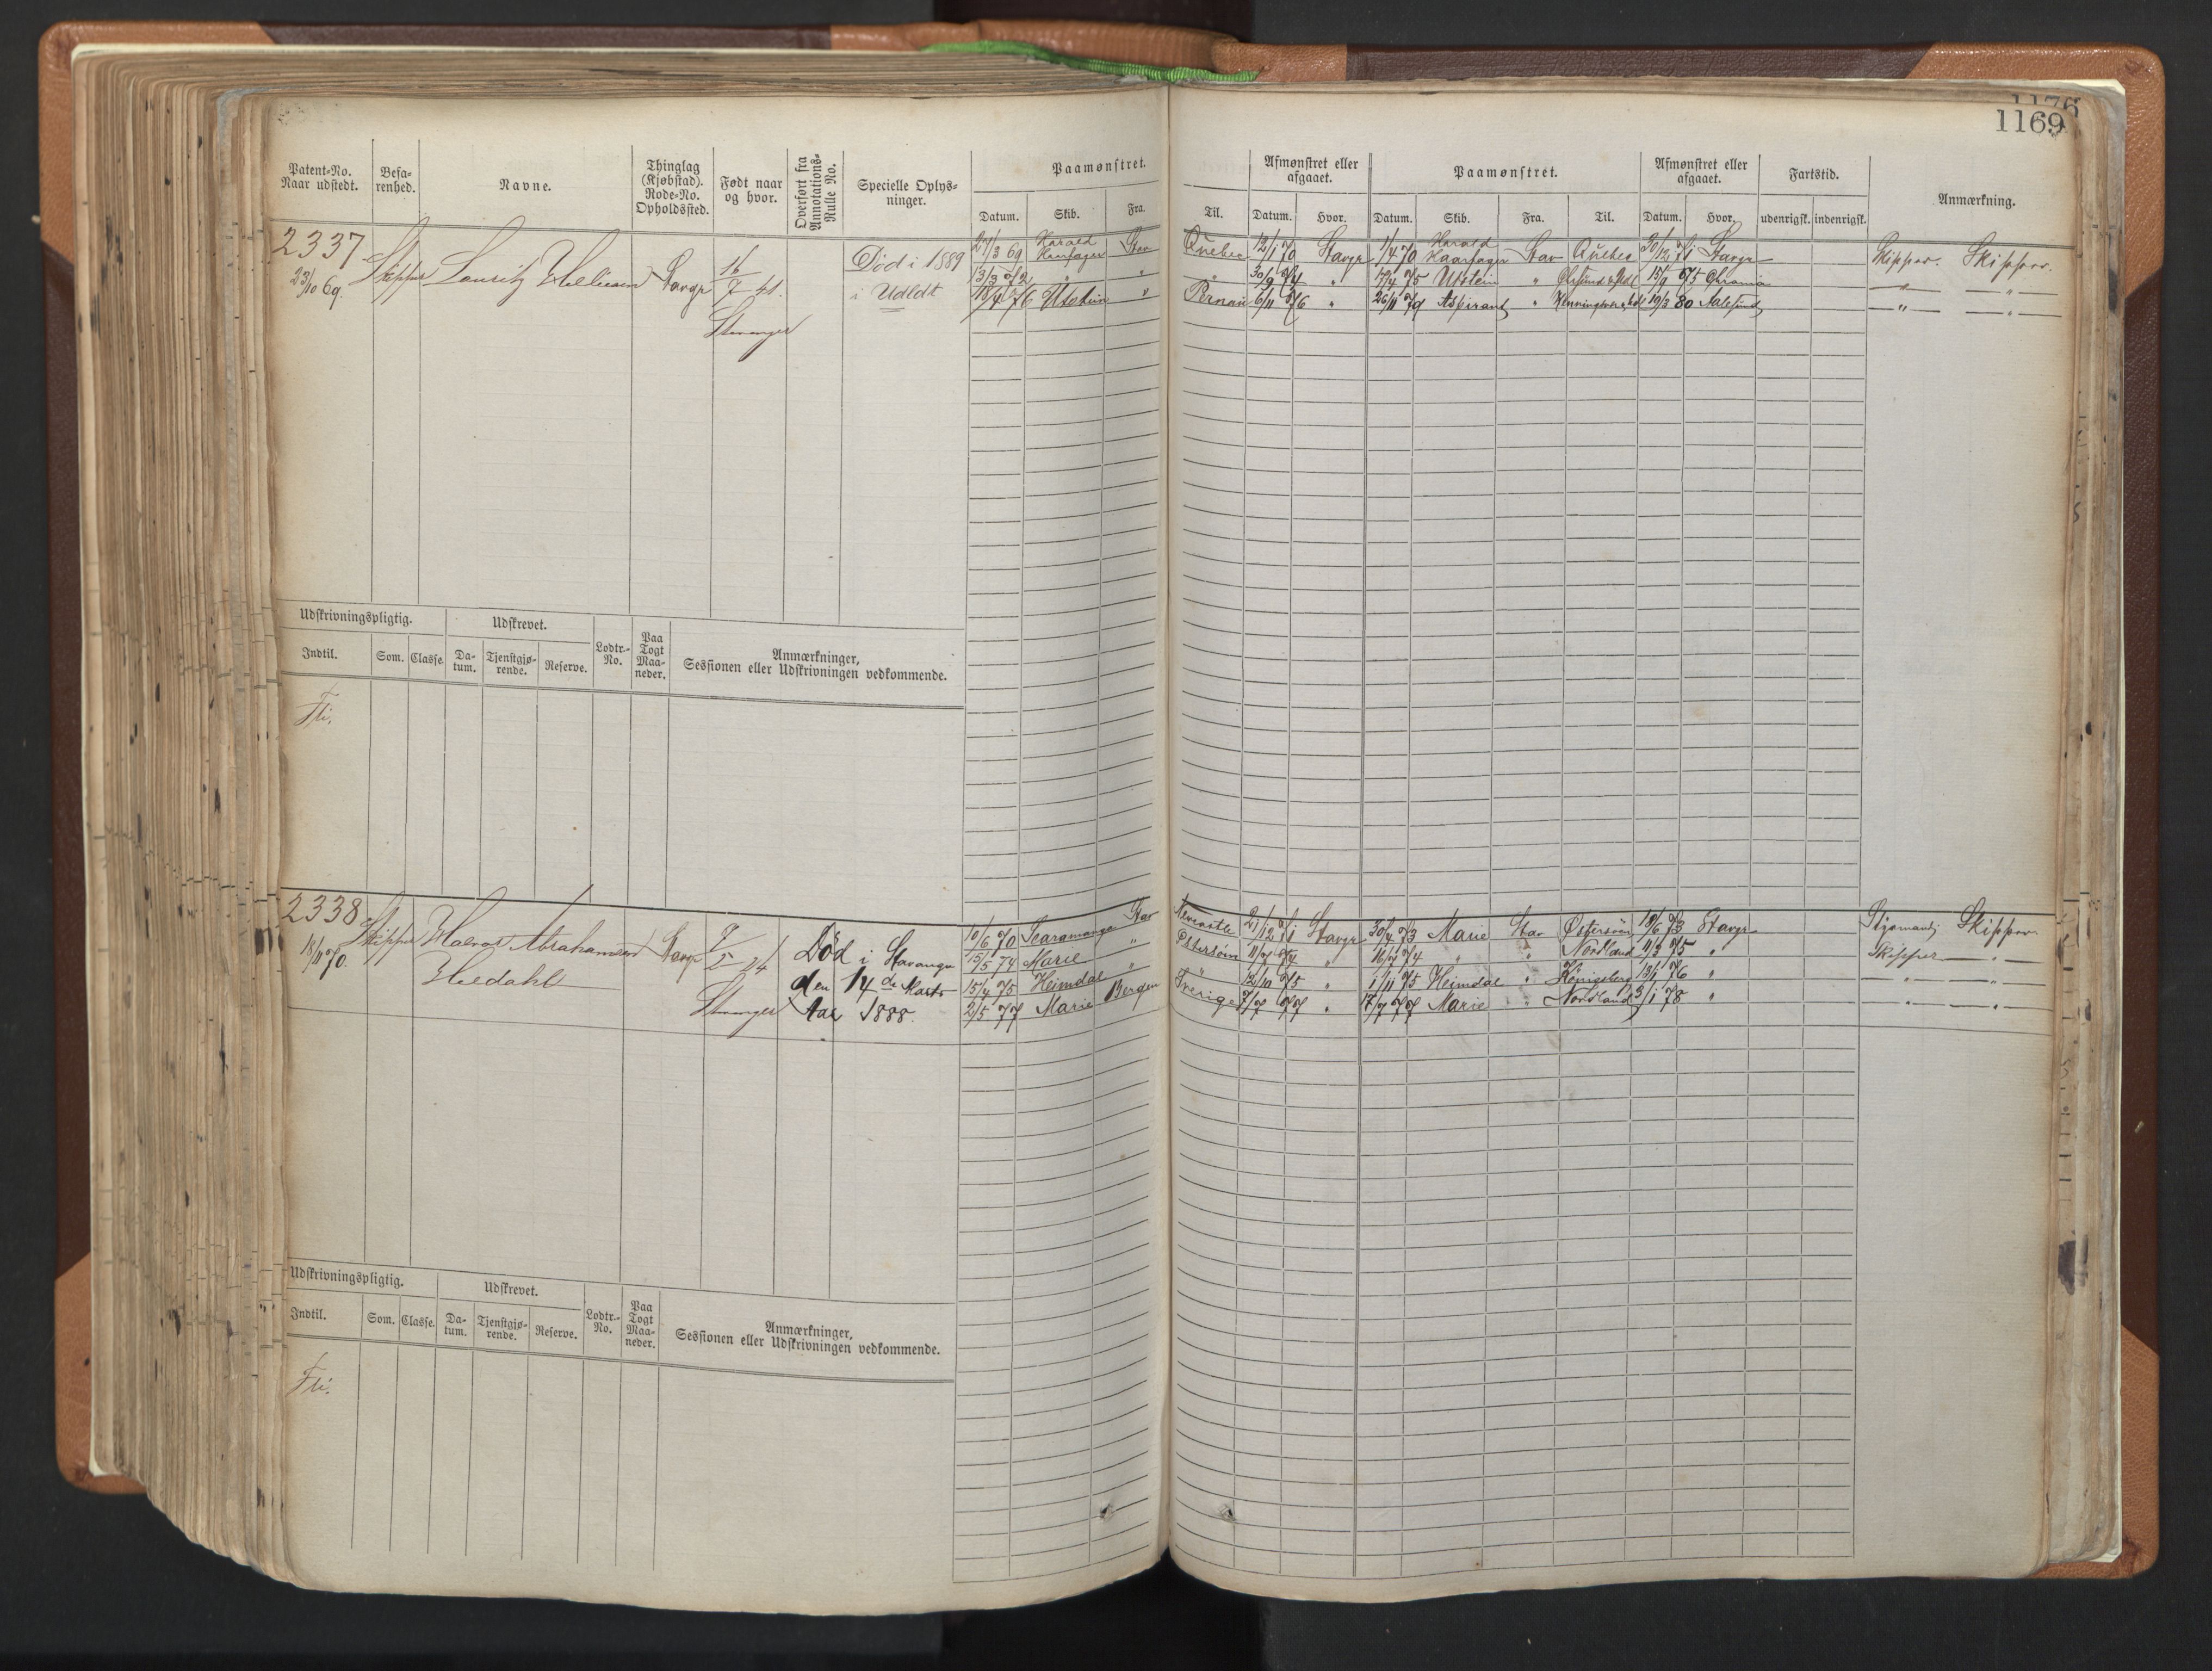 1176
1169
Patent-No. Naar udstedt. Befa-renhed. Navne. Thinglag (Kjøbstad). Rode-No. Opholdssted. Født naar og hvor. Overført fra Annotations-Rulle No. Specielle Oplys-ninger. Paamønstret. Afmønstret eller afgaaet. Paamønstret. Afmønstret eller afgaaet. Fartstid. Anmærkning.
Datum. Skib. Fra. Til. Datum. Hvor. Datum. Skib. Fra. Til. Datum. Hvor. udenrigsk. indenrigsk.
2337
23/10 69. Skipper Lauritz Stavgr 16/7 41. Stavanger
Død i 1889
i Udldt
27/3 69 Harald Haarfager Stav Quebec 12/1 70 Stavgr 1/4 70 Harald Haarfager Stav Quebec 30/12 71 Stavgr Skipper. Skipper.
13/3 72 " " " 30/9 74 " 17/4 75 Utstein " 15/9 75 Chrania " "
18/4 76 Utstein " Pernau 6/11 76 " 26/11 79 Aspirant " 19/3 80 Aalesund " "
Udskrivningspligtig. Udskrevet. Lodtr.-No. Paa Togt Maa-neder. Anmærkninger, Sessionen eller Udskrivningen vedkommende.
Indtil. Som. Classe. Da-tum. Tjenstgjø-rende. Reserve.
Fri.
2338
18/11 70. Skipper Halvor Abrahamsen Stavgr 7/2 24 Stavanger
Hedahl
Død i Stavanger
den 14de Marts
Aar 1888.
10/6 70 Scaramanga Stav Newcastle 21/12 71 Stavgr 30/4 73 Marie Stav Østersøen 19/6 73 Stavgr Styrmand, Skipper
15/5 74 Marie " Østersøen 11/7 74 " 16/7 74 " " Nordland 11/3 75 " Skipper "
15/4 75 Heimdal " " 12/10 75 " 1/11 75 Heimdal " Königsberg 13/1 76 " " "
2/5 77 Marie Bergen Sverige 7/7 77 " 17/7 77 Marie " Nordland 3/1 78 " " "
Udskrivningspligtig. Udskrevet. Lodtr.-No. Paa Togt Maa-neder. Anmærkninger, Sessionen eller Udskrivningen vedkommende.
Indtil. Som. Classe. Da-tum. Tjenstgjø-rende. Reserve.
Fri.